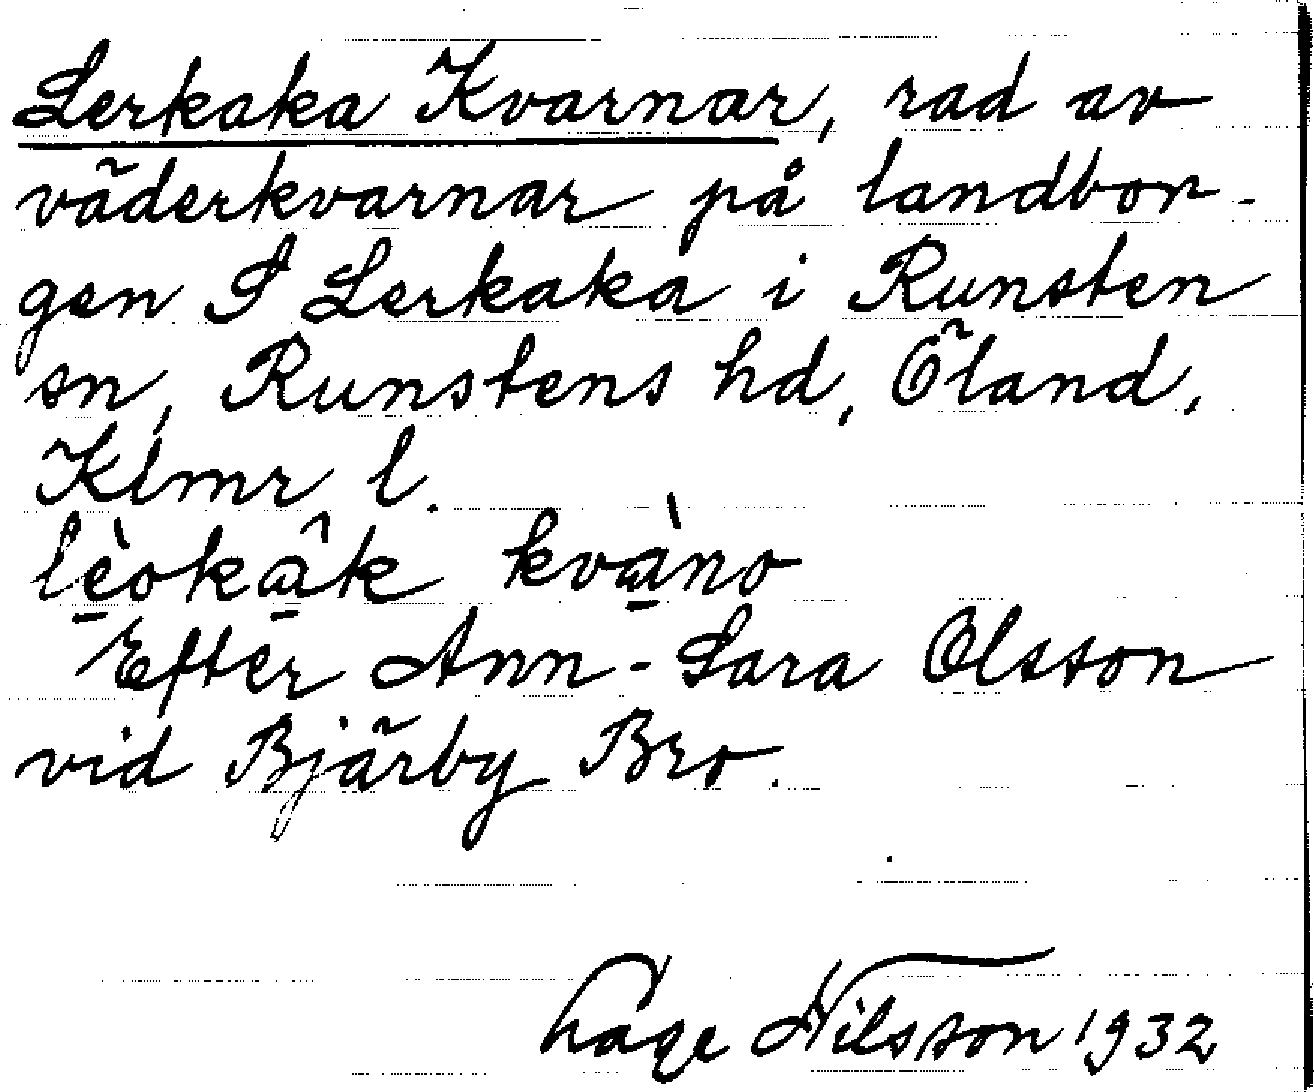 Lerkaka Kvarnar, rad av
väderkvarnar på landbor-
gen I Lerkaka i Runsten
sn, Runstens hd, Öland,
Klmr l.
lèokâk kvàno
Efter Ann-Sara Olsson
vid Bjärby Bro.
Låge Nilsson 1932